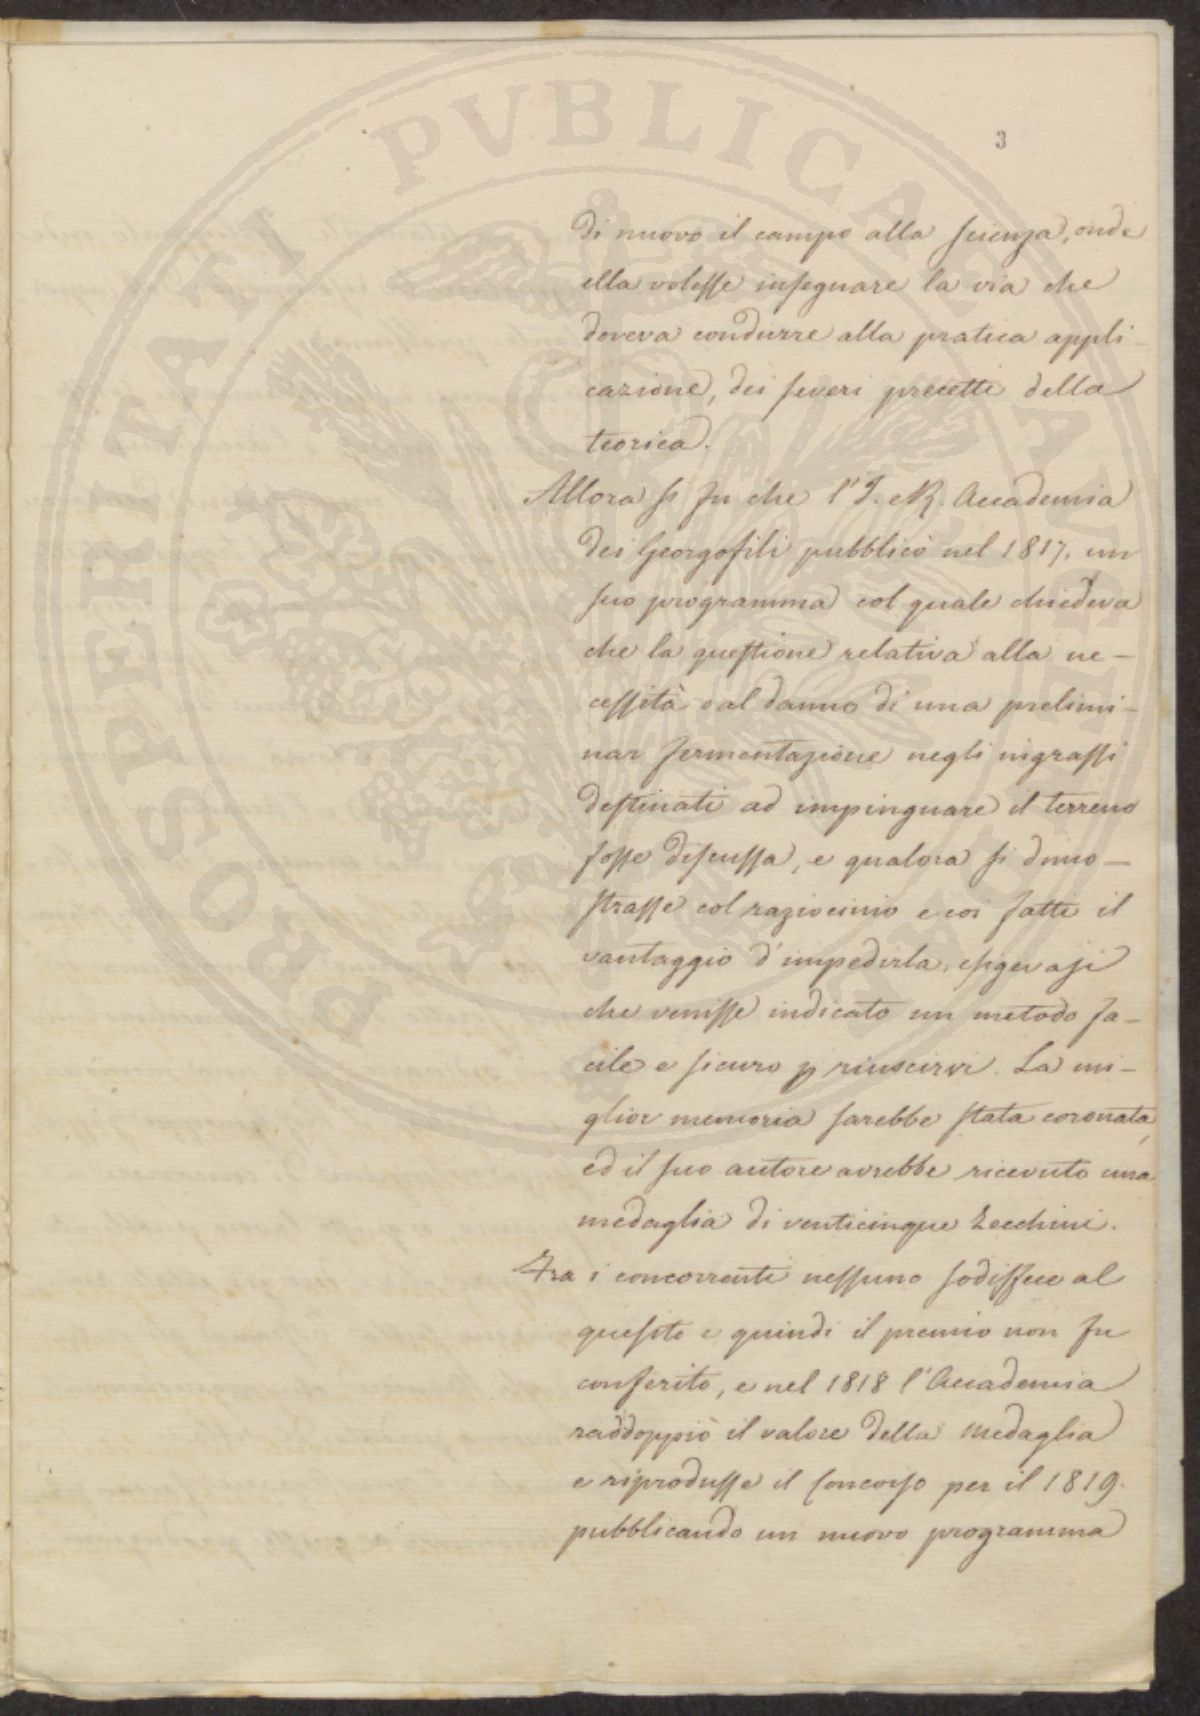 PROSPERITATI PUBLICAE AUGENDAE
3
di nuovo il campo alla scienza, onde
ella volesse insegnare la via che
doveva condurre alla pratica appli-
cazione, dei severi precetti della
teorica.
Allora si fu che l'I. e R. Accademia
dei Georgofili pubblicò nel 1817. un
suo programma col quale chiedeva
che la questione relativa alla ne-
cessità o al danno di una prelimi-
nar fermentazione negli ingrassi
destinati ad impinguare il terreno
fosse discussa, e qualora si dimo-
strasse col raziocinio e coi fatti il
vantaggio d'impedirla, esigevasi
che venisse indicato un metodo fa-
cile e sicuro p riuscirvi. La mi-
glior memoria sarebbe stata coronata,
ed il suo autore avrebbe ricevuto una
medaglia di venticinque Zecchini.
Fra i concorrenti nessuno sodisfece al
quesito e quindi il premio non fu
conferito, e nel 1818 l'Accademia
raddoppiò il valore della medaglia
e riprodusse il Concorso per il 1819.
pubblicando un nuovo programma